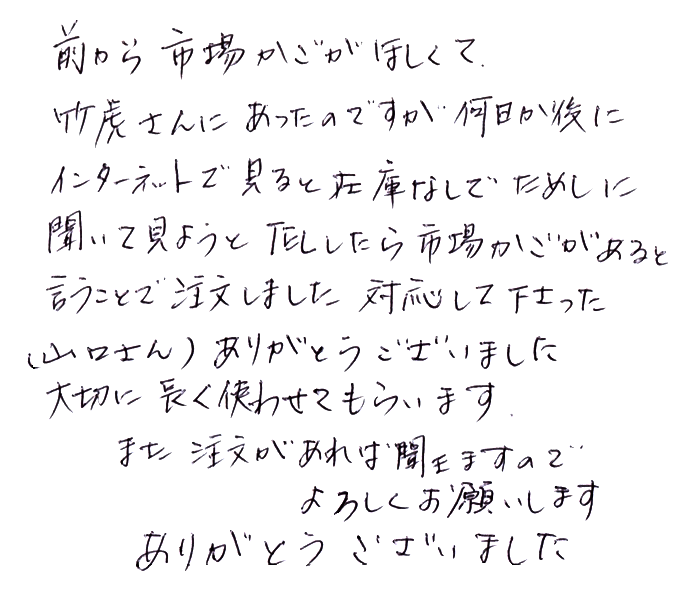 前から市場かごがほしくて.
竹虎さんにあったのですが何日か後に
インターネットで見ると在庫なしでためしに
聞いて見ようとTELしたら市場かごがあると
言うことで注文しました 対応して下さった
(山口さん)ありがとうございました
大切に長く使わせてもらいます.
また注文があれば聞きますので
よろしくお願いします
ありがとうございました